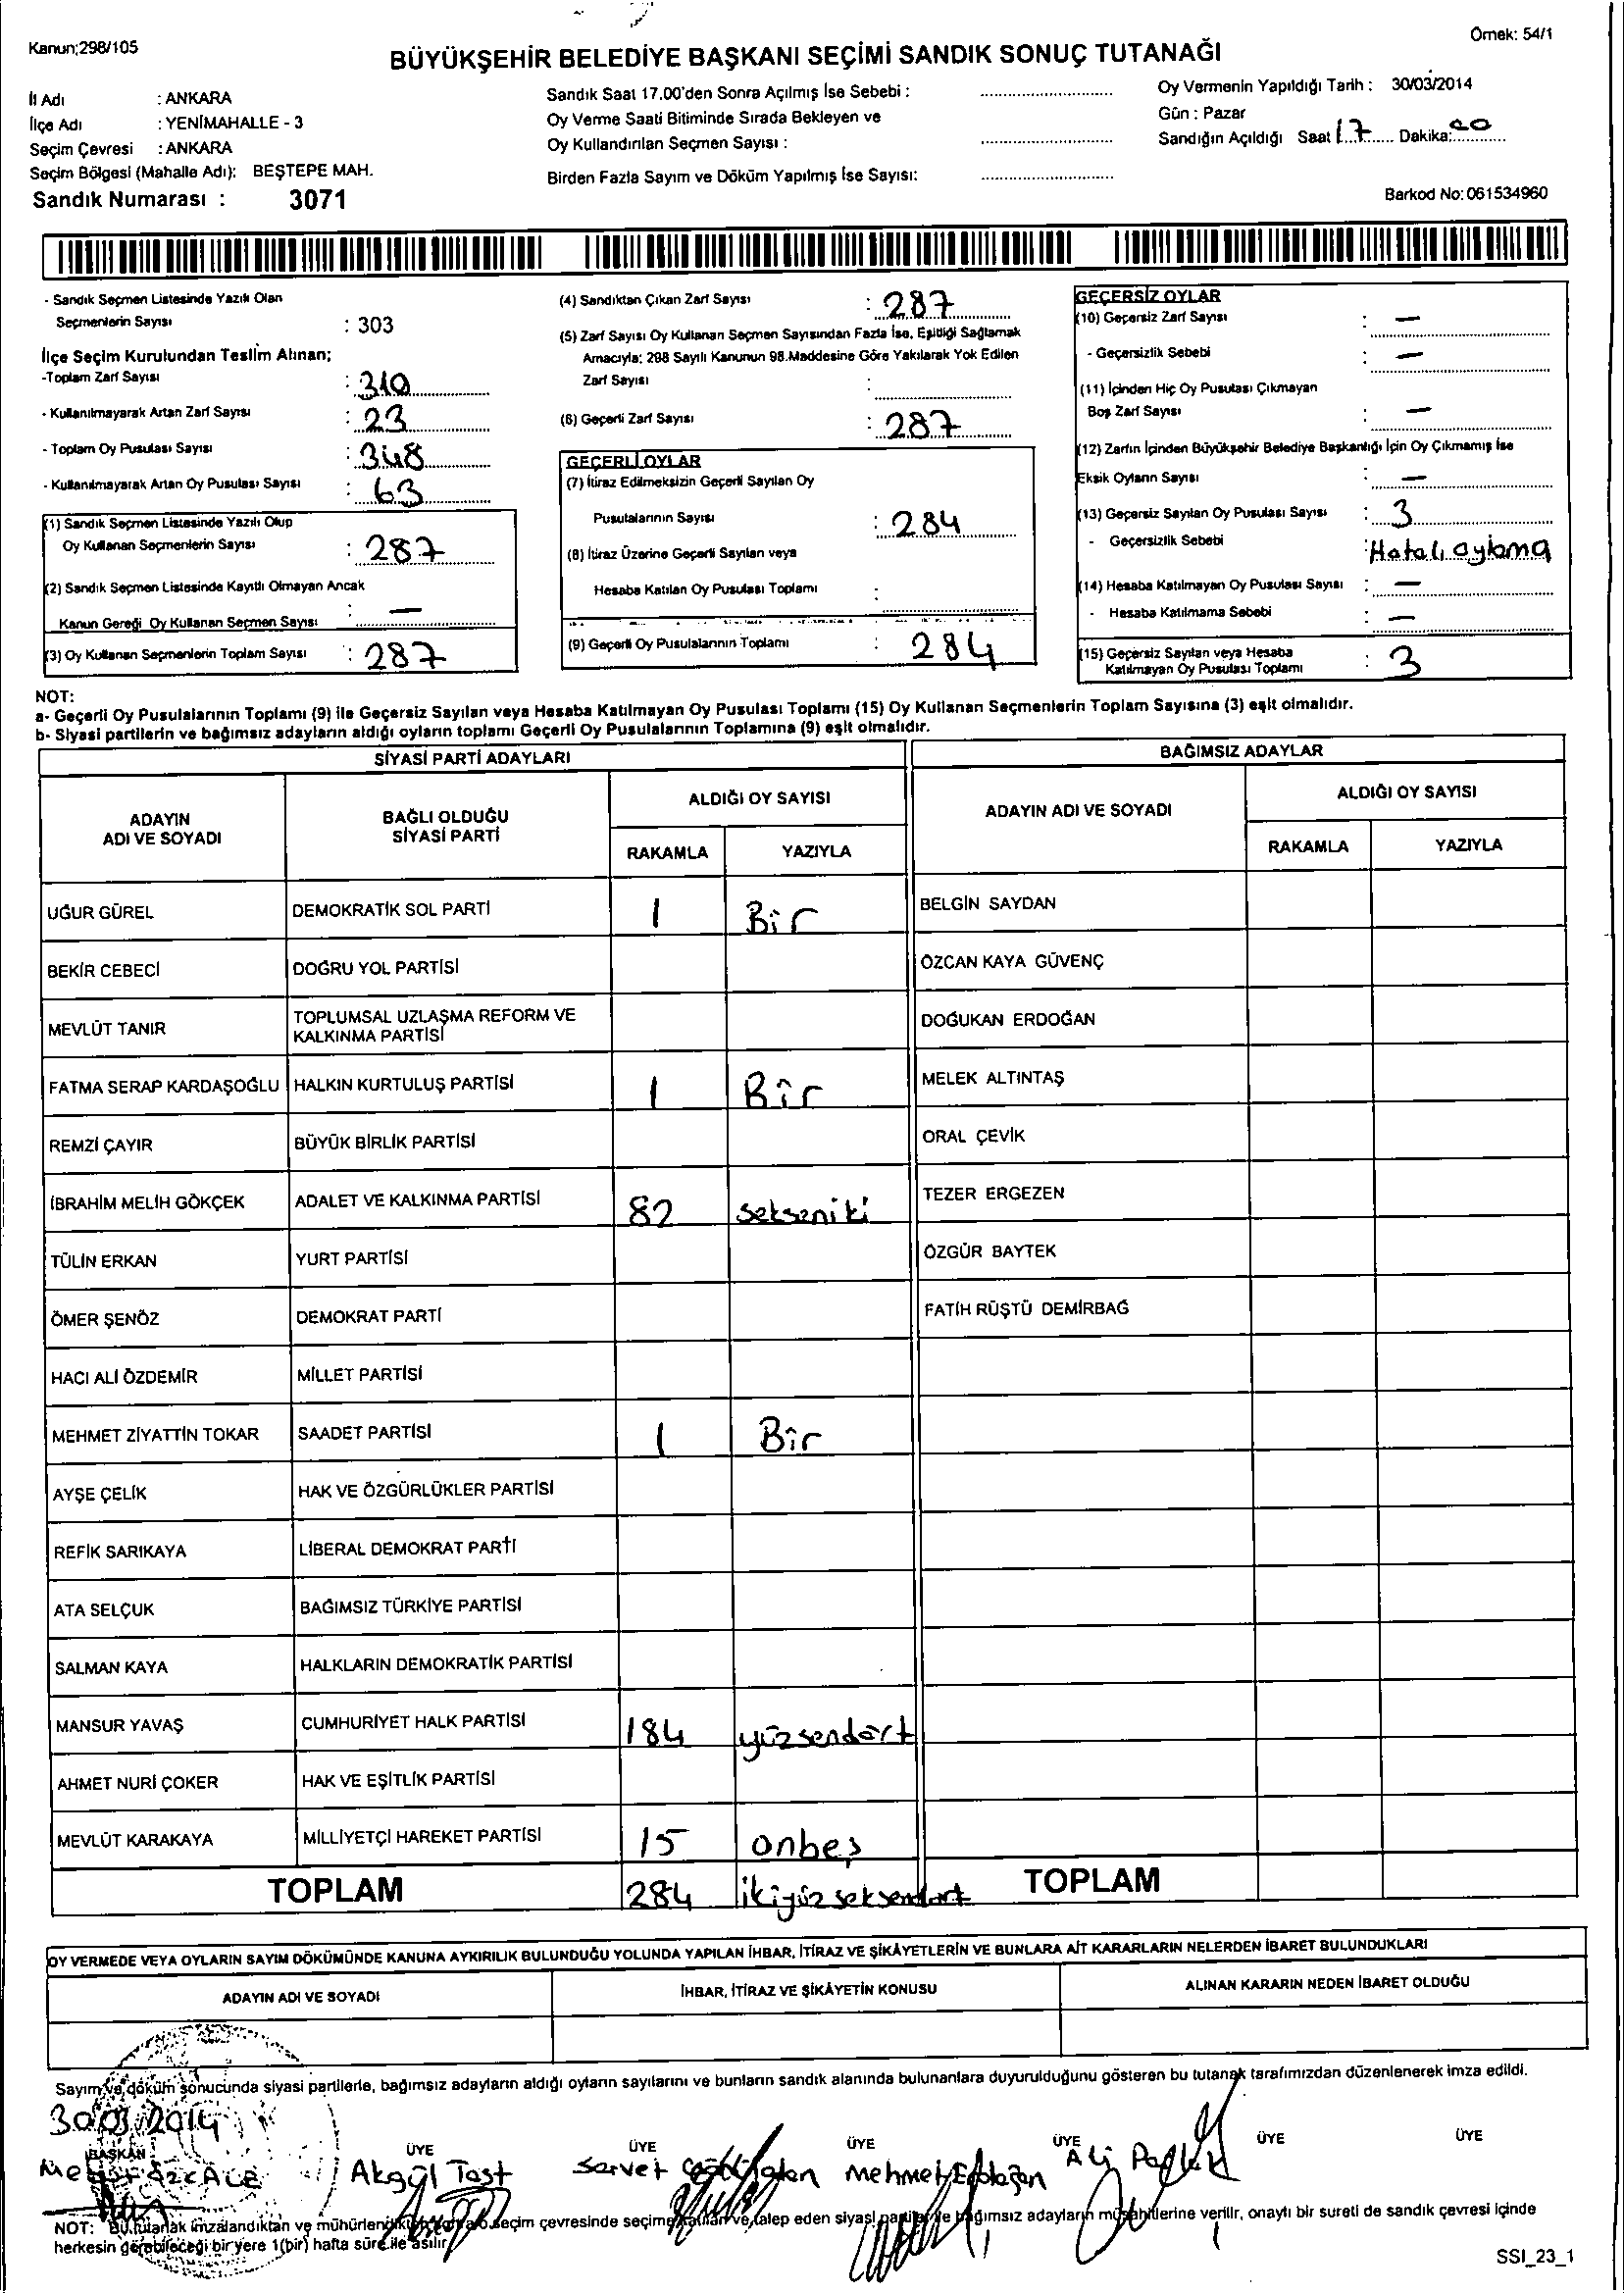 Kanun;298/105
Örnek: 54/1
BÜYÜKŞEHİR BELEDİYE BAŞKANI SEÇİMİ SANDIK SONUÇ TUTANAĞI
İl Adı : ANKARA
İlçe Adı : YENİMAHALLE - 3
Seçim Çevresi : ANKARA
Seçim Bölgesi (Mahalle Adı): BEŞTEPE MAH.
Sandık Numarası : 3071
Sandık Saat 17.00'den Sonra Açılmış İse Sebebi :
Oy Verme Saati Bitiminde Sırada Bekleyen ve
Oy Kullandırılan Seçmen Sayısı :
Birden Fazla Sayım ve Döküm Yapılmış İse Sayısı:
Oy Vermenin Yapıldığı Tarih : 30/03/2014
Gün : Pazar
Sandığın Açıldığı Saat 17 Dakika: 00
Barkod No: 061534960
- Sandık Seçmen Listesinde Yazılı Olan
Seçmenlerin Sayısı : 303
İlçe Seçim Kurulundan Teslim Alınan;
-Toplam Zarf Sayısı : 310
- Kullanılmayarak Artan Zarf Sayısı : 23
- Toplam Oy Pusulası Sayısı : 348
- Kullanılmayarak Artan Oy Pusulası Sayısı : 63
(1) Sandık Seçmen Listesinde Yazılı Olup
Oy Kullanan Seçmenlerin Sayısı : 287
(2) Sandık Seçmen Listesinde Kayıtlı Olmayan Ancak
Kanun Gereği Oy Kullanan Seçmen Sayısı : —
(3) Oy Kullanan Seçmenlerin Toplam Sayısı : 287
(4) Sandıktan Çıkan Zarf Sayısı : 287
(5) Zarf Sayısı Oy Kullanan Seçmen Sayısından Fazla İse, Eşitliği Sağlamak
Amacıyla; 298 Sayılı Kanunun 98.Maddesine Göre Yakılarak Yok Edilen
Zarf Sayısı :
(6) Geçerli Zarf Sayısı : 287
GEÇERLİ OYLAR
(7) İtiraz Edilmeksizin Geçerli Sayılan Oy
Pusulalarının Sayısı : 284
(8) İtiraz Üzerine Geçerli Sayılan veya
Hesaba Katılan Oy Pusulası Toplamı :
(9) Geçerli Oy Pusulalarının Toplamı : 284
GEÇERSİZ OYLAR
(10) Geçersiz Zarf Sayısı : —
- Geçersizlik Sebebi : —
(11) İçinden Hiç Oy Pusulası Çıkmayan
Boş Zarf Sayısı : —
(12) Zarfın İçinden Büyükşehir Belediye Başkanlığı İçin Oy Çıkmamış İse
Eksik Oyların Sayısı : —
(13) Geçersiz Sayılan Oy Pusulası Sayısı : 3
- Geçersizlik Sebebi : Hatalı oylama
(14) Hesaba Katılmayan Oy Pusulası Sayısı : —
- Hesaba Katılmama Sebebi : —
(15) Geçersiz Sayılan veya Hesaba
Katılmayan Oy Pusulası Toplamı : 3
NOT:
a- Geçerli Oy Pusulalarının Toplamı (9) ile Geçersiz Sayılan veya Hesaba Katılmayan Oy Pusulası Toplamı (15) Oy Kullanan Seçmenlerin Toplam Sayısına (3) eşit olmalıdır.
b- Siyasi partilerin ve bağımsız adayların aldığı oyların toplamı Geçerli Oy Pusulalarının Toplamına (9) eşit olmalıdır.
SİYASİ PARTİ ADAYLARI
BAĞIMSIZ ADAYLAR
ADAYIN ADI VE SOYADI
BAĞLI OLDUĞU SİYASİ PARTİ
ALDIĞI OY SAYISI
RAKAMLA YAZIYLA
ADAYIN ADI VE SOYADI
ALDIĞI OY SAYISI
RAKAMLA YAZIYLA
UĞUR GÜREL DEMOKRATİK SOL PARTİ 1 Bir BELGİN SAYDAN
BEKİR CEBECİ DOĞRU YOL PARTİSİ ÖZCAN KAYA GÜVENÇ
MEVLÜT TANIR TOPLUMSAL UZLAŞMA REFORM VE KALKINMA PARTİSİ DOĞUKAN ERDOĞAN
FATMA SERAP KARDAŞOĞLU HALKIN KURTULUŞ PARTİSİ 1 Bir MELEK ALTINTAŞ
REMZİ ÇAYIR BÜYÜK BİRLİK PARTİSİ ORAL ÇEVİK
İBRAHİM MELİH GÖKÇEK ADALET VE KALKINMA PARTİSİ 82 sekseniki TEZER ERGEZEN
TÜLİN ERKAN YURT PARTİSİ ÖZGÜR BAYTEK
ÖMER ŞENÖZ DEMOKRAT PARTİ FATİH RÜŞTÜ DEMİRBAĞ
HACI ALİ ÖZDEMİR MİLLET PARTİSİ
MEHMET ZİYATTİN TOKAR SAADET PARTİSİ 1 Bir
AYŞE ÇELİK HAK VE ÖZGÜRLÜKLER PARTİSİ
REFİK SARIKAYA LİBERAL DEMOKRAT PARTİ
ATA SELÇUK BAĞIMSIZ TÜRKİYE PARTİSİ
SALMAN KAYA HALKLARIN DEMOKRATİK PARTİSİ
MANSUR YAVAŞ CUMHURİYET HALK PARTİSİ 184 yüzsendört
AHMET NURİ ÇOKER HAK VE EŞİTLİK PARTİSİ
MEVLÜT KARAKAYA MİLLİYETÇİ HAREKET PARTİSİ 15 onbeş
TOPLAM 284 ikiyüz seksendört TOPLAM
OY VERMEDE VEYA OYLARIN SAYIM DÖKÜMÜNDE KANUNA AYKIRILIK BULUNDUĞU YOLUNDA YAPILAN İHBAR, İTİRAZ VE ŞİKÂYETLERİN VE BUNLARA AİT KARARLARIN NELERDEN İBARET BULUNDUKLARI
ADAYIN ADI VE SOYADI İHBAR, İTİRAZ VE ŞİKÂYETİN KONUSU ALINAN KARARIN NEDEN İBARET OLDUĞU
Sayım ve döküm sonucunda siyasi partilerle, bağımsız adayların aldığı oyların sayılarını ve bunların sandık alanında bulunanlara duyurulduğunu gösteren bu tutanak tarafımızdan düzenlenerek imza edildi.
30/03/2014
BAŞKAN ÜYE ÜYE ÜYE ÜYE ÜYE ÜYE
Akgül Tast Servet Mehmet Ali
NOT: Bu tutanak imzalandıktan ve mühürlendikten sonra o seçim çevresinde seçime katılan ve talep eden siyasi parti ve bağımsız adayların müşahitlerine verilir, onaylı bir sureti de sandık çevresi içinde
herkesin görebileceği bir yere 1(bir) hafta süre ile asılır
SSI_23_1